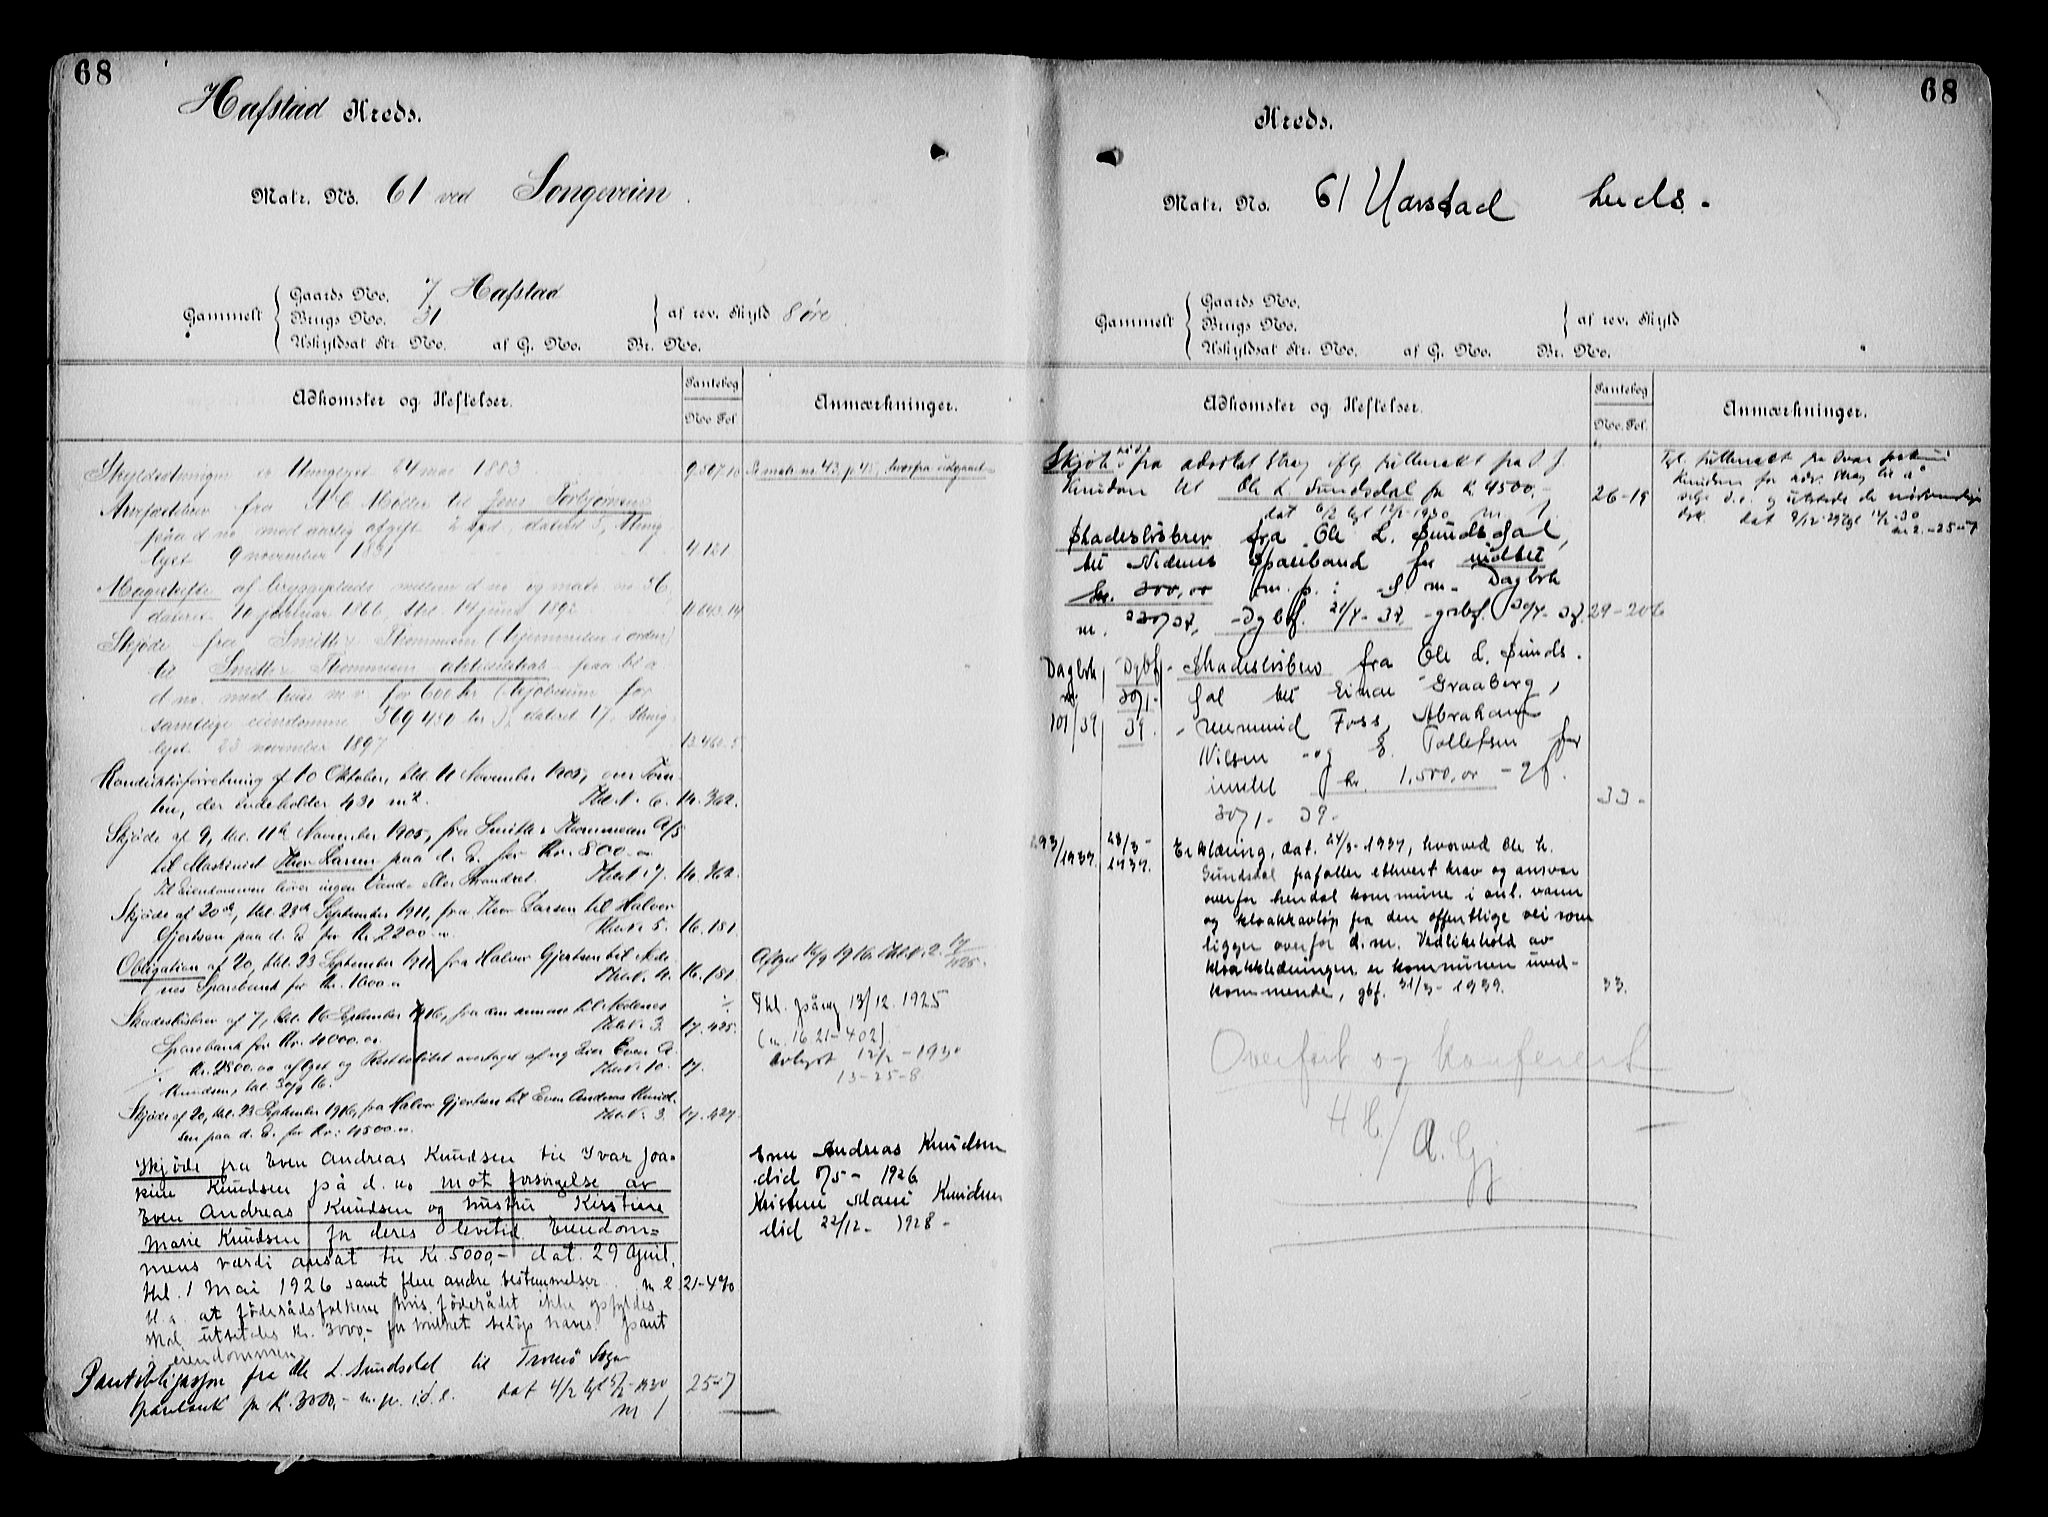 68
Hafstad Kreds.
Matr. No. 61 ved Songeveien.
Gammelt
Gaards No. 7 Hafstad
Brugs No. 31
af rev. Skyld 8 øre
Uskyldsat Str. No. af G. No. Br. No.
Adkomster og Heftelser.
Pantebog
No. Fol.
Anmærkninger.
Skylddelingen er tinglyst 24 mai 1883
9.567.10
Se matr. no. 43, p. 45, hvorfra udgaaet
Arvefæstebrev fra A C Møller til Jens Torbjørnsen
paa d no. mod aarlig afgift 2 spd., dateret 3, thing-
lyst 9 november 1881
4.121
Mageskifte af byggeplads mellem d no og matr no
dateret 10 januar 1866, thl. 14 juni 1892
11.643.14
Skjøde fra Smith & Thommesen (hjemmelen i orden)
til Smith & Thommesen aktieselskab paa bl a
d no. med huse m v for 600 kr (kjøbesum for
samtlige eiendomme 569 450 kr), dateret 17, thing-
lyst 23 november 1897
13.460.5
Konduktørforretning af 10 Oktober, thl. 11 November 1905, over Tom-
ten, der indeholder 431 m2.
Thl. N. 6.
14. 362.
Skjøde af 9, thl. 11te November 1905, fra Smith & Thommesen A/S
til Maskinist Thor Larsen paa d. E. for Kr. 800.00
Thl. N. 7.
14. 362.
Til Eiendommen hører ingen Vand- eller Strandret.
Skjøde af 20de, thl. 23de September 1911, fra Thor Larsen til Halvor
Gjertsen paa d. E. for Kr. 2200.00
Thl. N. 5.
16. 181
Obligation af 20, thl. 23 September 1911 fra Halvor Gjertsen til Nede-
nes Sparebank for Kr. 1000.00
Thl. N. 4.
16. 181.
Aflyst 16/9 1916. Thl. N. 2. 17/425.
Skadesløsbrev af 7, thl. 16 September 1916, fra den samme til Nedenes
Sparebank for Kr. 4000.00
Thl. N. 3.
17. 425.
Thl. påny 13/12. 1925
(n. 16 21-402)
Avlyst 12/2 - 1930
13-25-8
Kr. 2800.00 aflyst og Restbeløbet overtaget af ny Eier Even A.
Knudsen, thl. 30/9 16.
Thl. N. 10.
17.
Skjøde af 20, thl. 23 September 1916, fra Halvor Gjertsen til Even Andreas Knud-
sen paa d. E. for Kr. 4500.00
Thl. N. 3.
17. 427.
Skjøde fra Even Andreas Knudsen til Ivar Joa-
kim Knudsen på d. no mot forsørgelse av
Even Andreas Knudsen og hustru Kirstine
Marie Knudsen for deres levetid. Eiendom=
mens værdi ansat til Kr. 5000,- dat. 29 April,
thl. 1 Mai 1926 samt flere andre bestemmelser. n. 2
21-490
bl. a. at føderådsfolkene hvis føderådet ikke opfyldes
skal utbetales Kr. 3000,- for hvilket beløp haves pant
i eiendommen.
Even Andreas Knudsen
død 8/5 - 1926
Kristine Marie Knudsen
død 22/12 - 1928 -
Pantobligasjon fra Ole L. Sundsdal til Tromø Sogn
sparebank for K. 3000,- m. pr. i d. e. dat 4/2 tgl 5/2-1930
n 1
25-7
68
Kreds.
Matr. No. 61 Havstad kreds.
Gammelt
Gaards No.
Brugs No.
af rev. Skyld
Uskyldsat Str. No. af G. No. Br. No.
Adkomster og Heftelser.
Pantebog
No. Fol.
Anmærkninger.
Skjøte fra advokat Stray iflg fullmakt fra I. J.
Knudsen til Ole L. Sundsdal for K 4500,-
dat 6/2 tgl 12/2-1930 n 1.
26-19
Tgl. fullmakt fra Ivar Joakim
Knudsen for adv. Stray til å
selge d. e. og utstede de nødvendige
dok. dat 9/12-29 tgl 12/2-30
n 2. -25-57
Skadesløsbrev fra Ole L. Sundsdal,
til Nidenes Sparebank for inntil
kr. 300,00
Dagbok
n. 330/37, - Dgbf. 21/4-37, - grbf. 30/4-37.
29-206
Dagbok
n.
101/39
Dgbf
30/1-
39.
Skadesløsbrev fra Ole L. Sunds-
dal til Einar Graaberg,
Foss, Abraham
Nilsen og E. Tollefsen for
inntil kr. 1.500,00 - gf.
30/1- 39.
33-
293/1939.
28/3-
1939.
Erklæring, dat. 24/3-1939, hvorved Ole L.
Sundsdal frafaller ethvert krav og ansvar
overfor Arendal kommune i anl. vann
og kloakkavløp fra den offentlige vei som
ligger overfor d. m. Vedlikehold av
kloakkledningen er kommunen uved-
kommende, gbf. 31/3-1939.
33.
Overført og konferert
H H / A. Gj